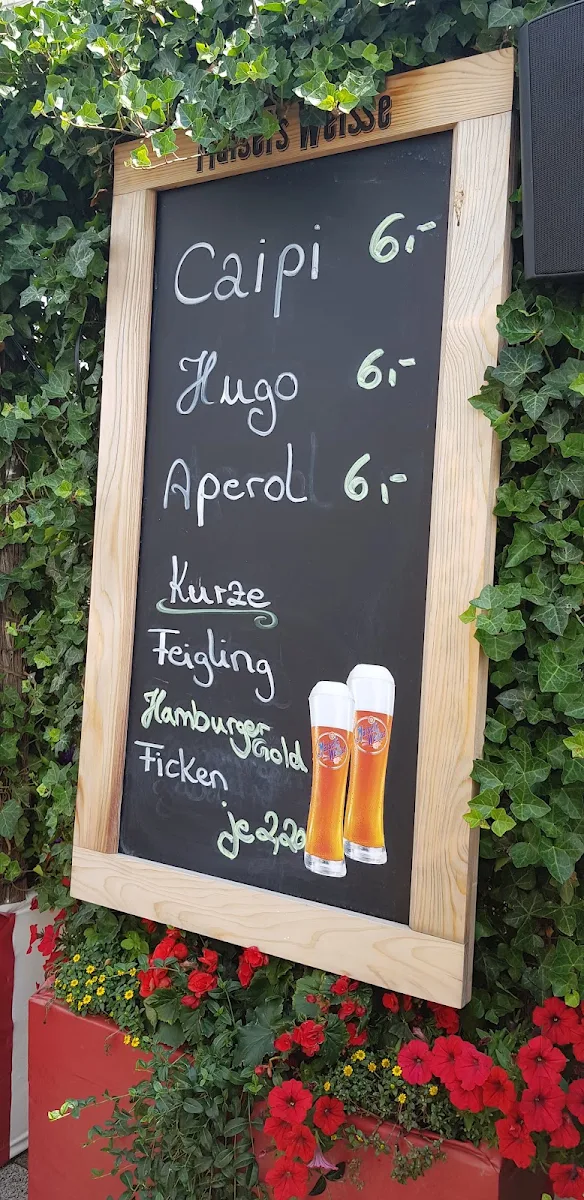 Maisel's Weisse
Caipi 6,-
Hugo 6,-
Aperol 6,-
Kurze
Feigling
Hamburger Gold
Ficken
je 2,20